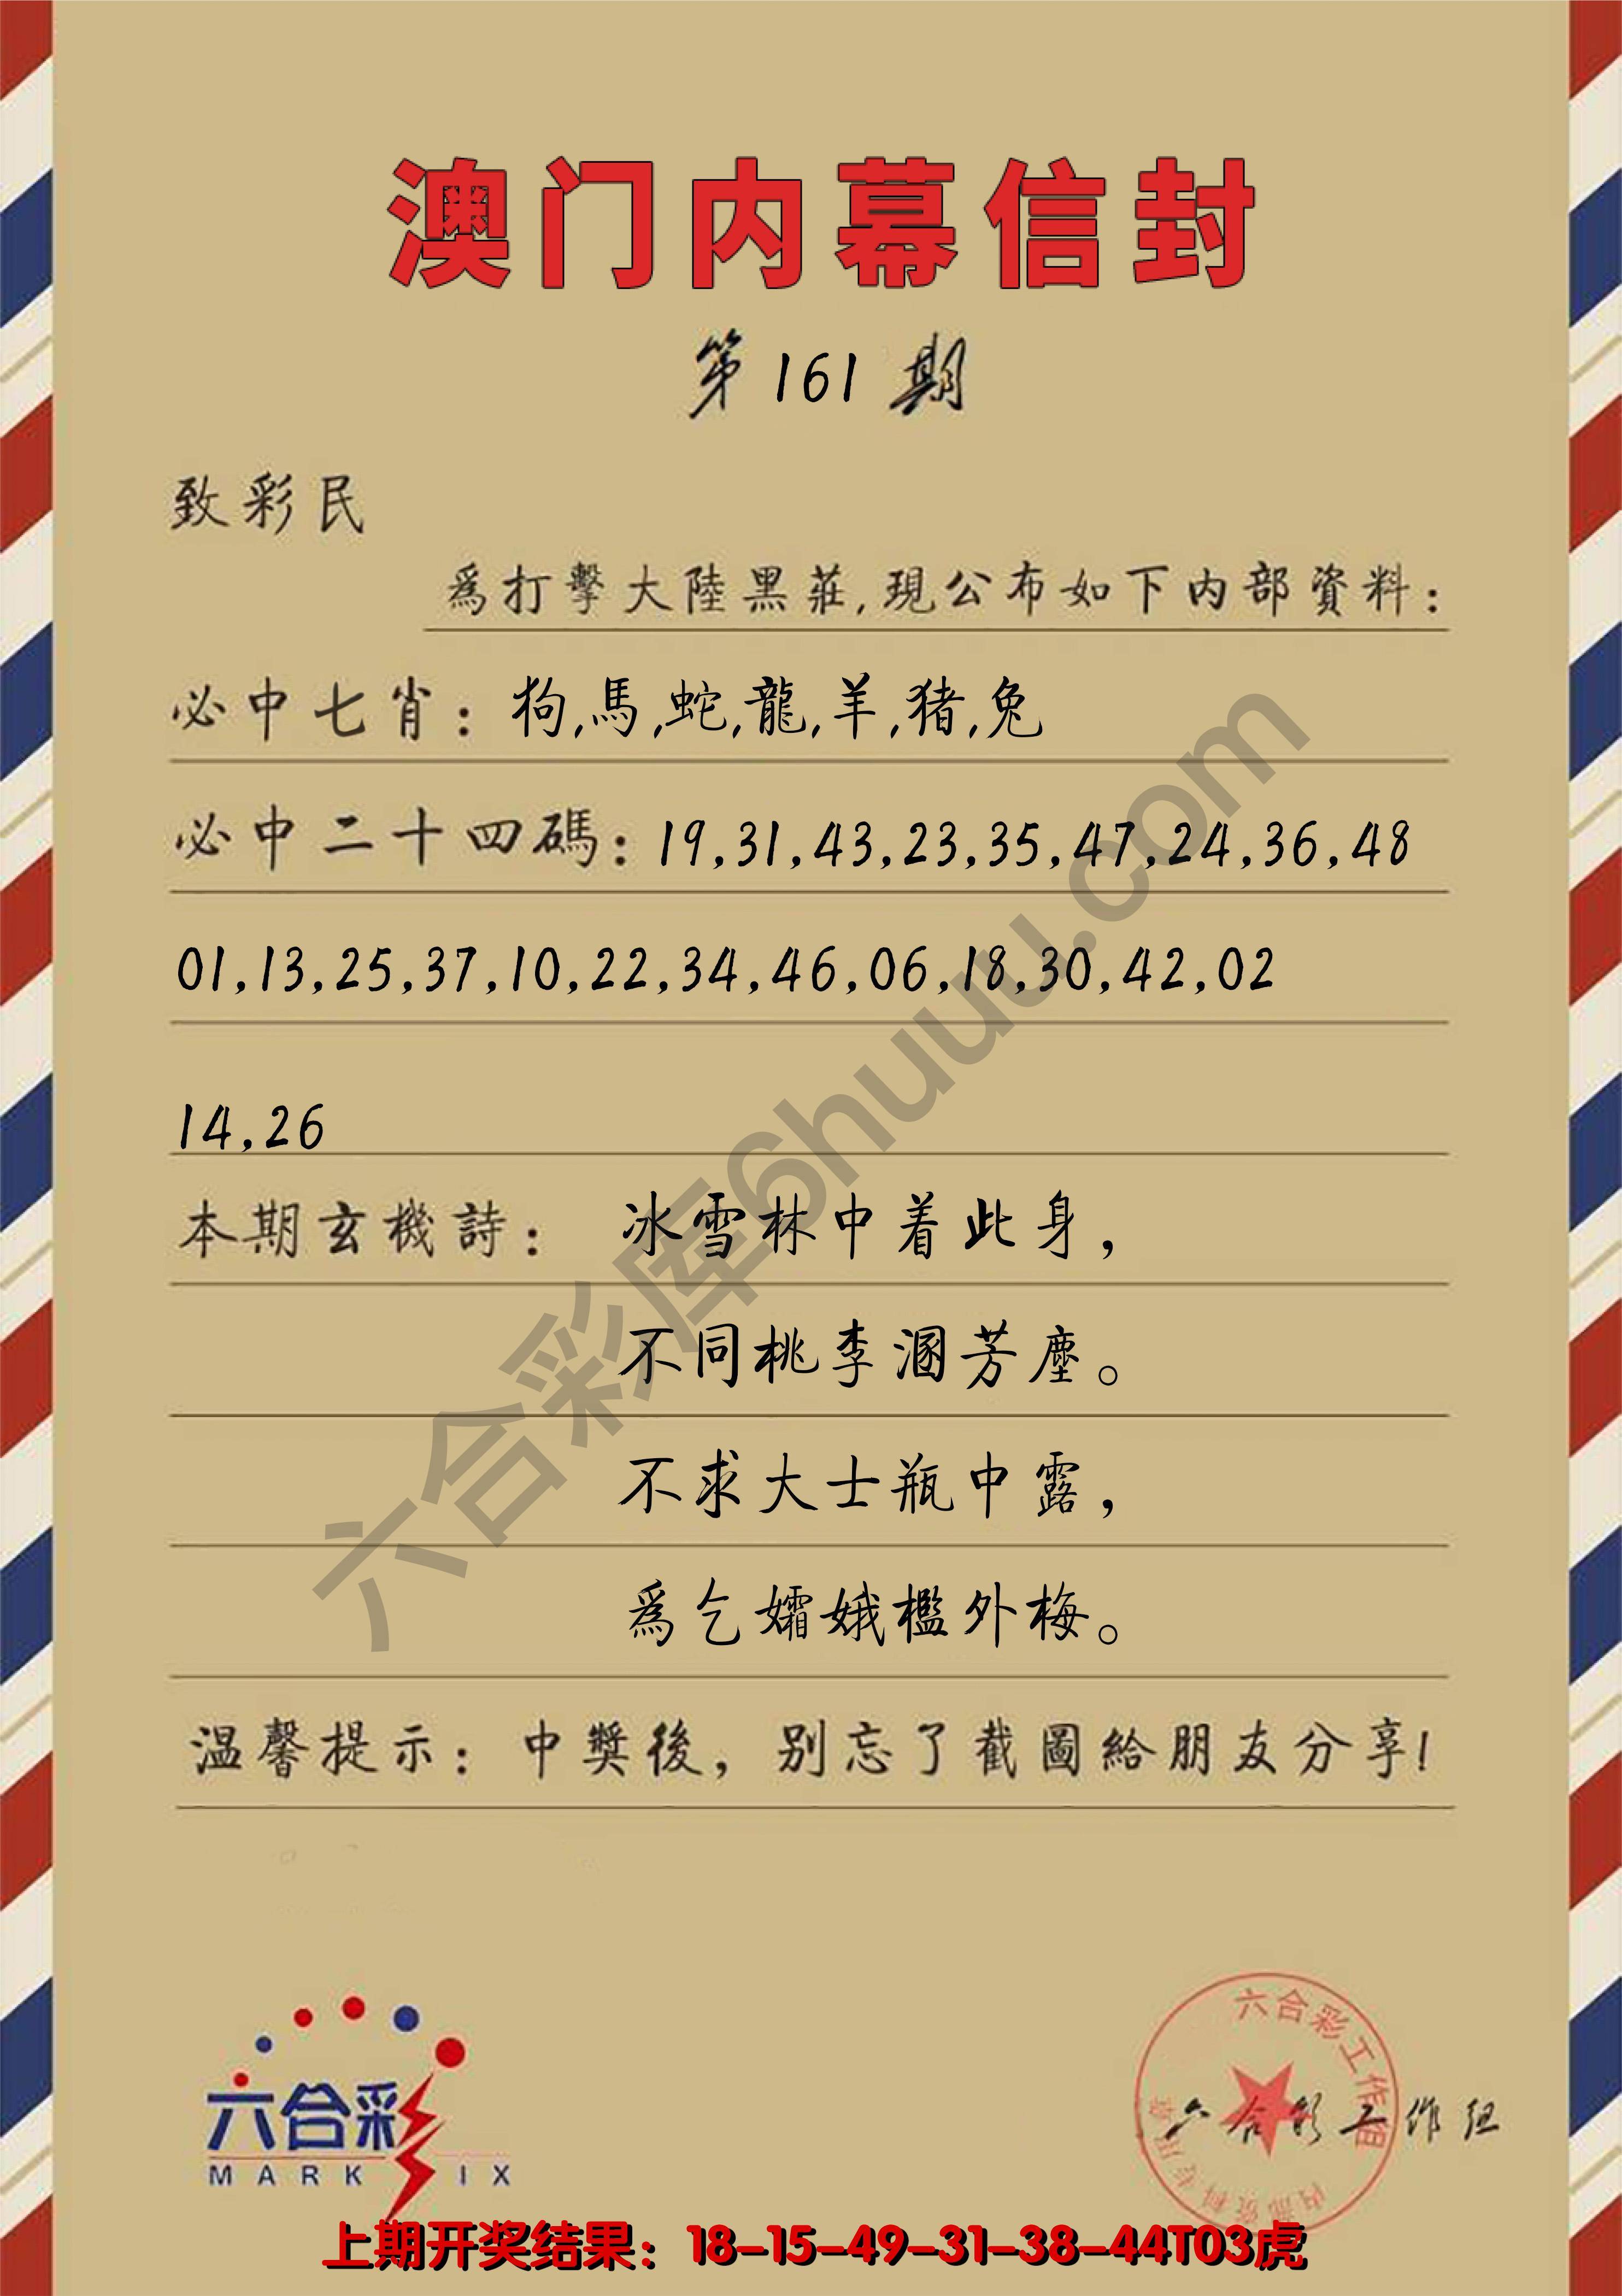 澳门内幕信封
第161期
致彩民
爲打擊大陸黑莊,現公布如下内部資料：
必中七肖：狗,馬,蛇,龍,羊,猪,兔
必中二十四碼：19,31,43,23,35,47,24,36,48
01,13,25,37,10,22,34,46,06,18,30,42,02
14,26
本期玄機詩：冰雪林中着此身，
不同桃李溷芳塵。
不求大士瓶中露，
爲乞孀娥檻外梅。
温馨提示：中獎後，别忘了截圖給朋友分享!
六合彩库6huuu.com
六合彩
MARK IX
六合彩工作组
内部资料专用章
六合彩工作组
上期开奖结果：18-15-49-31-38-44T03虎